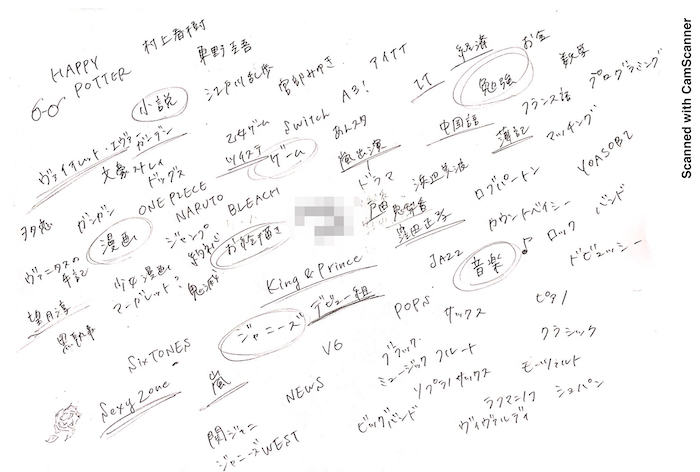 HAPPY
POTTER
村上春樹
東野圭吾
小説
江戸川乱歩
宮部みゆき
アイナナ
A3!
IT
経済
お金
勉強
数学
プログラミング
フランス語
中国語
簿記
ヴァイオレット・エヴァー
ガーデン
文豪ストレイ
ドッグス
乙女ゲーム
Switch
ツイステ
ゲーム
あんスタ
嵐出演
ドラマ
戸田
浜辺美波
窪田正孝
マッチング
ヲタ恋
ガンガン
ONE PIECE
NARUTO
BLEACH
漫画
ジャンプ
お絵描き
ヴァニタスの
手記
少女漫画
マーガレット
鬼滅
望月淳
黒執事
つ
ログパートン
カウントベイシー
YOASOBI
JAZZ
音楽
ロック
バンド
ドビュッシー
King & Prince
デビュー組
ジャニーズ
SixTONES
Sexy Zone
嵐
V6
NEWS
関ジャニ
ジャニーズWEST
POPS
サックス
ピアノ
クラシック
ブラック
ミュージック
フルート
ソプラノサックス
モーツァルト
ラフマニノフ
ショパン
ビッグバンド
ヴィヴァルディ
Scanned with CamScanner